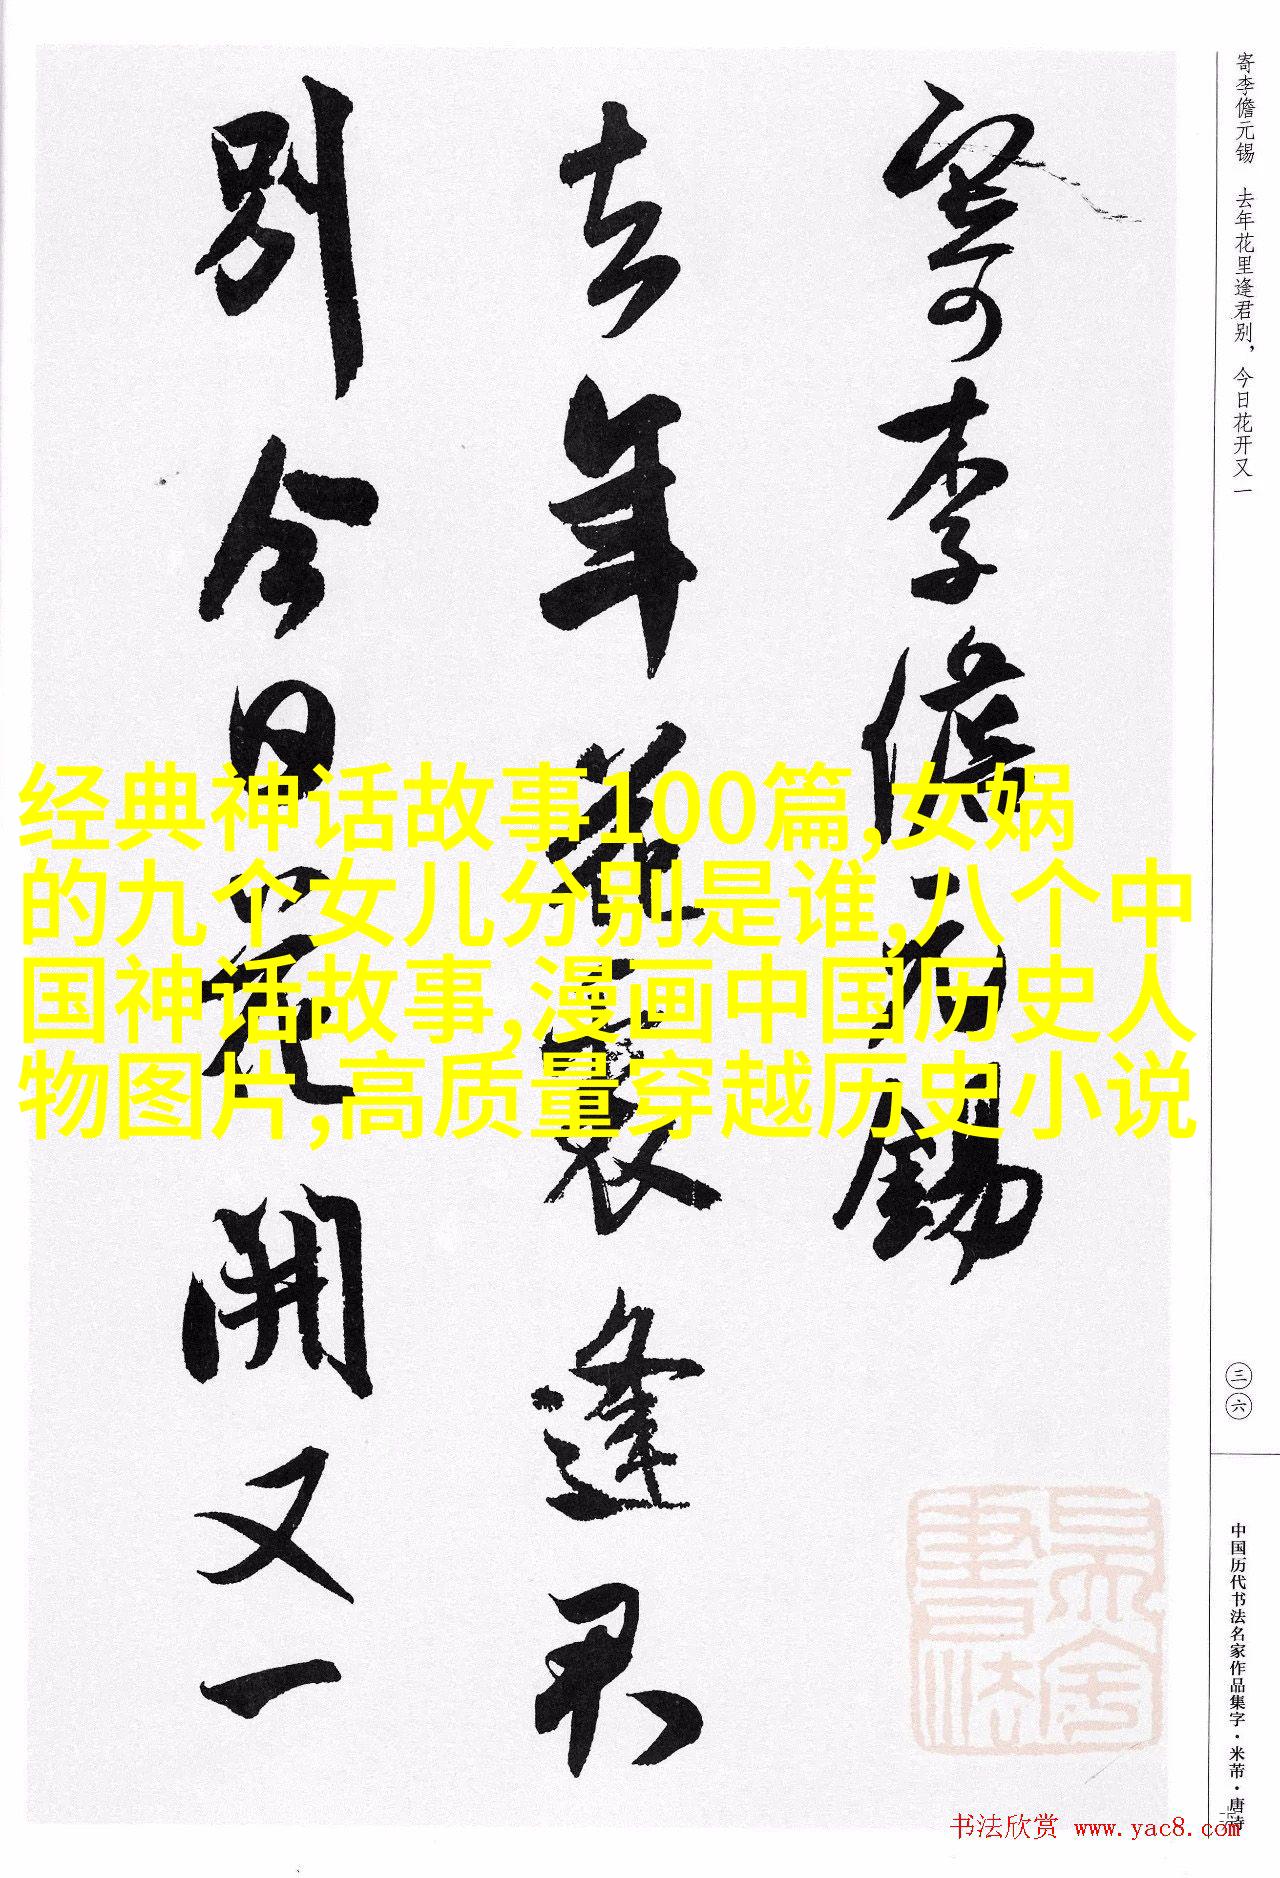 寄李儋元锡 去年花里逢君别，今日花开又一
寄李儋元錫
去年花裏逢君
別今日花開又一
经典神话故事100篇,女娲
的九个女儿分别是谁,八个中
国神话故事,漫画中国历史人
物图片,高质量穿越历史小说
三六
中国历代书法名家作品集字·米芾·唐诗
书法欣赏 www.yac8.com